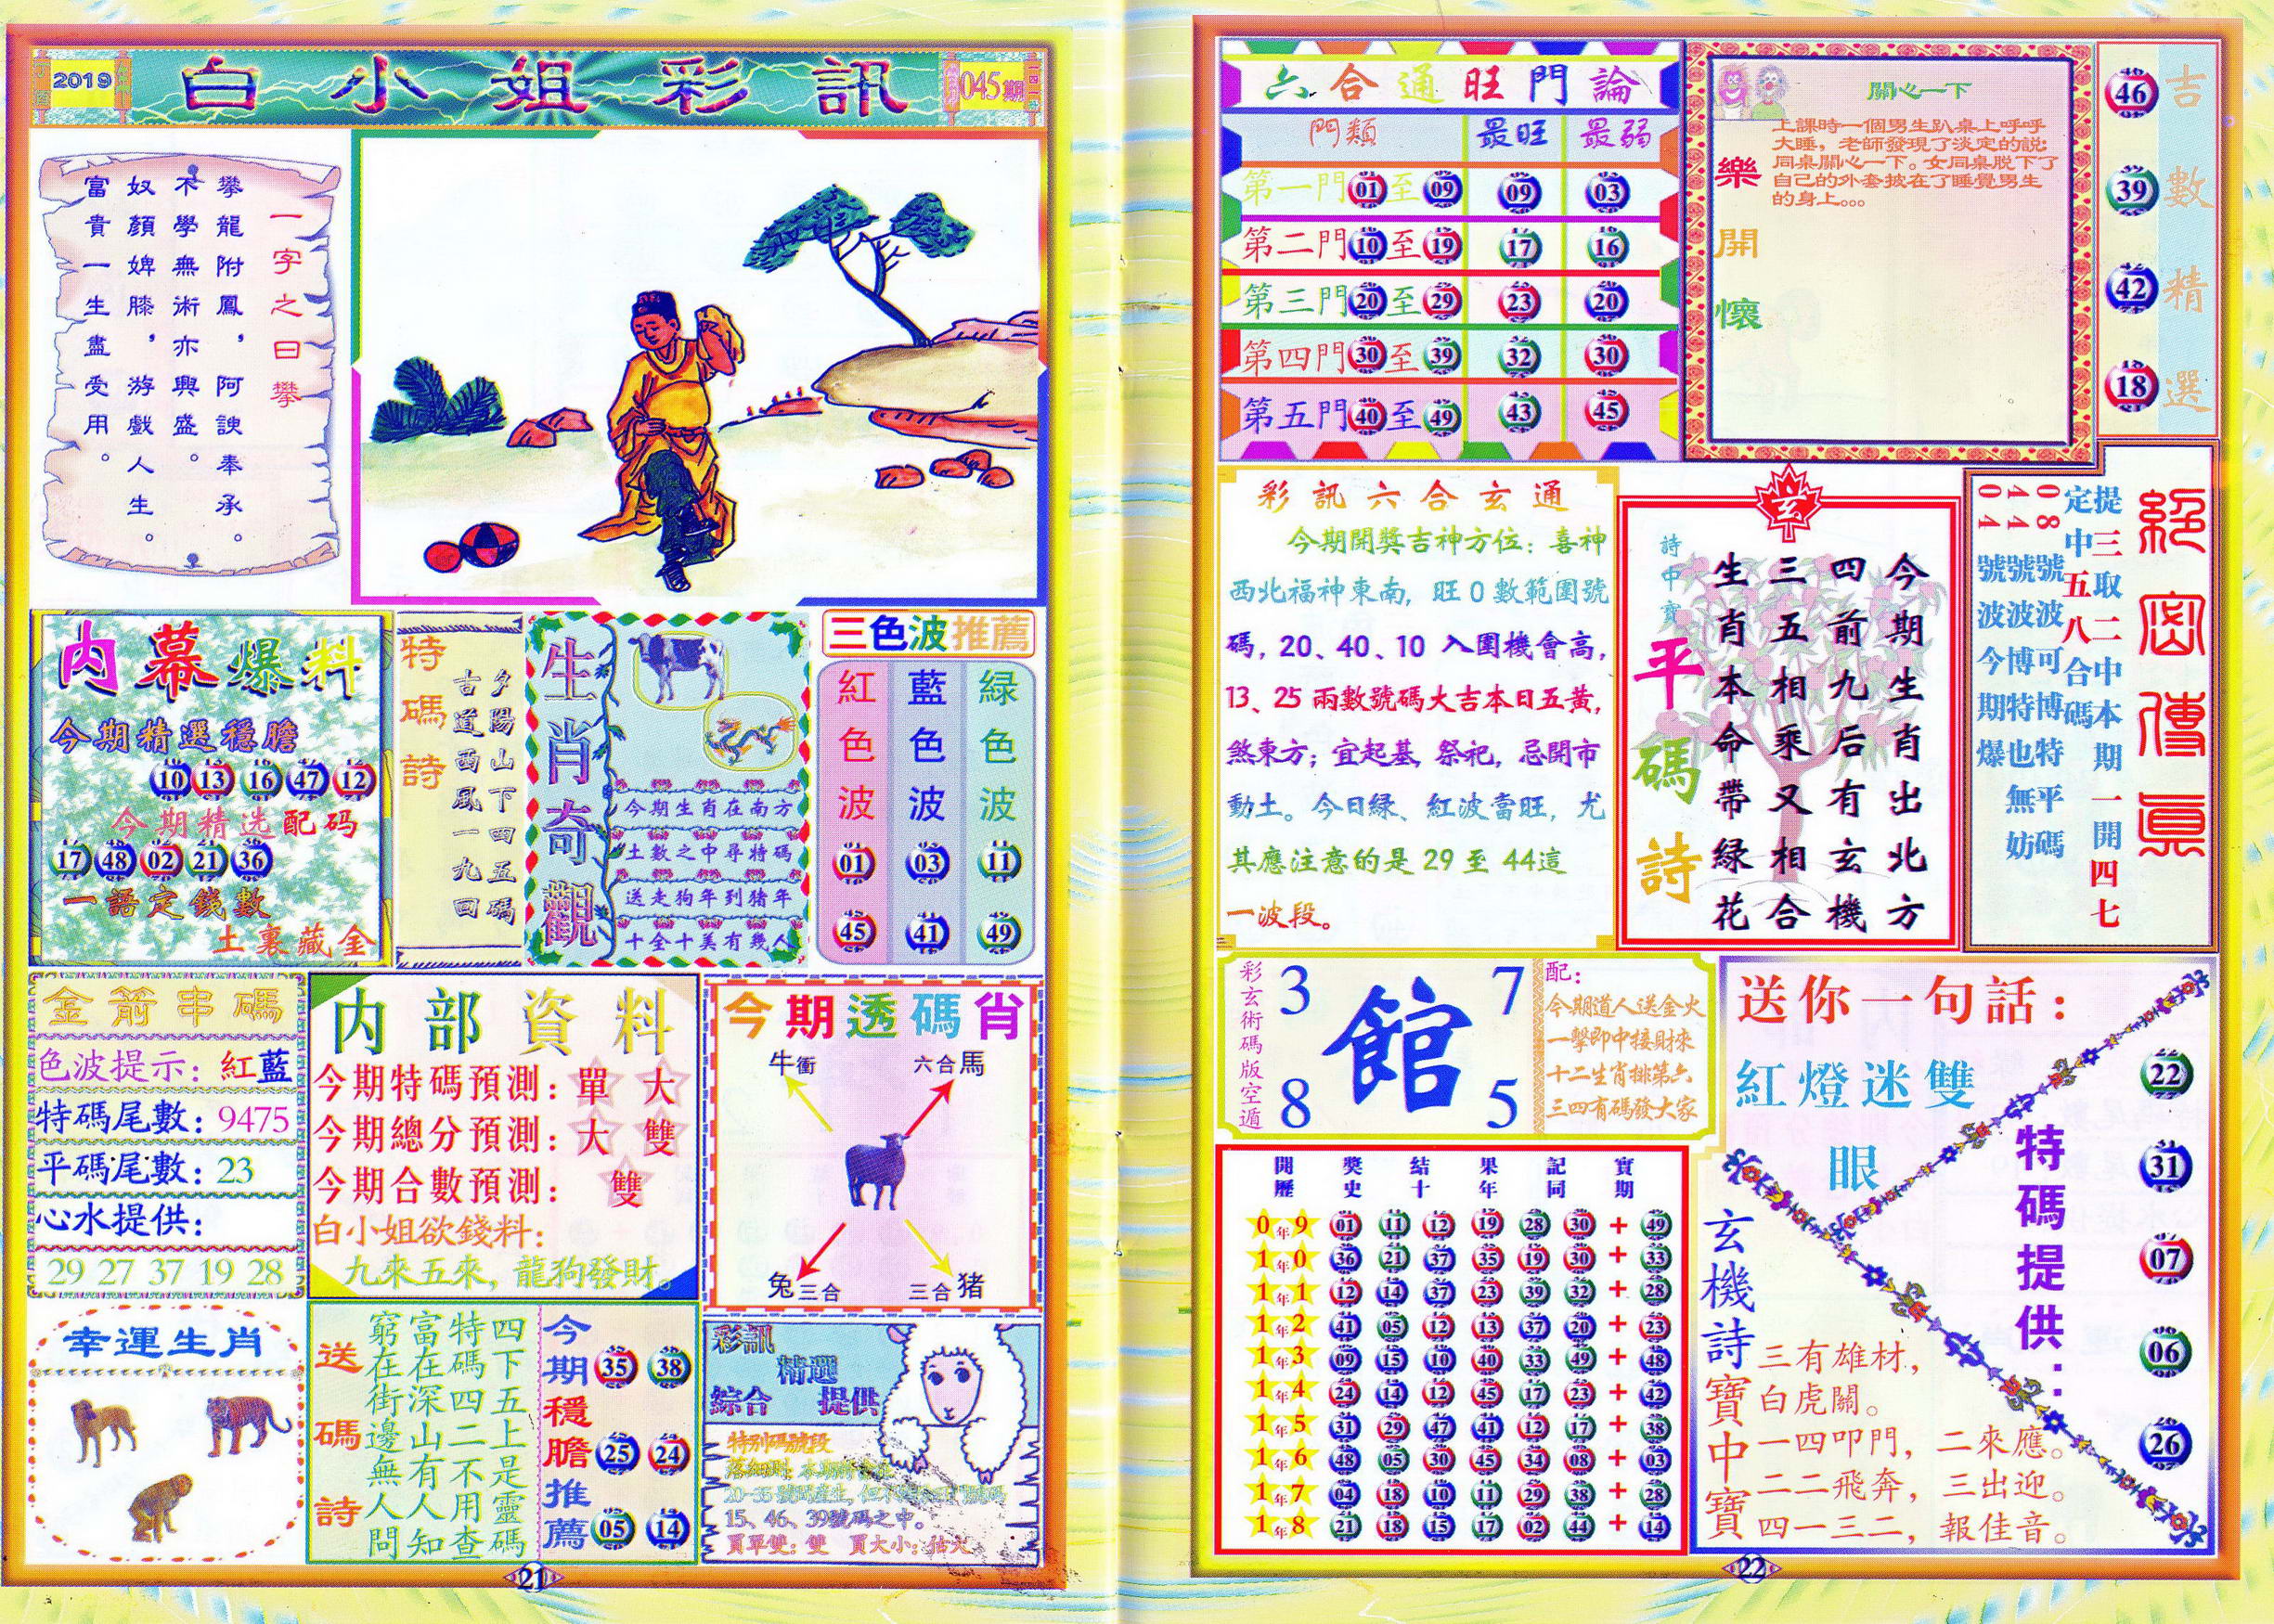 2019
白小姐彩訊
045期
一字之曰攀
攀龍附鳳，阿諛奉承。
不學無術亦興盛。
奴顏婢膝，游戲人生。
富貴一生盡受用。
內幕爆料
今期精選穩膽
10 13 16 47 12
今期精选配码
17 48 02 21 36
一語定錢數
土裏藏金
特碼詩
夕陽山下四五碼
古道西風一九回
生肖奇觀
今期生肖在南方
土數之中尋特碼
送走狗年到猪年
十全十美有幾人
三色波推薦
紅色波 藍色波 緑色波
01 03 11
45 41 49
金箭串碼
色波提示：紅藍
特碼尾數：9475
平碼尾數：23
心水提供：
29 27 37 19 28
內部資料
今期特碼預測：單 大
今期總分預測：大 雙
今期合數預測：雙
白小姐欲錢料：
九來五來，龍狗發財。
今期透碼肖
牛衝 六合馬
兔三合 三合猪
幸運生肖
送碼詩
四下五上是靈碼
特碼四二不用查
富在深山有人知
窮在街邊無人問
今期穩膽推薦
35 38
25 24
05 14
彩訊
精選
綜合 提供
特别碼號段
15、46、39號碼之中。
買單雙：雙 買大小：
21
六合通旺門論
門類 最旺 最弱
第一門01至09 09 03
第二門10至19 17 16
第三門20至29 23 20
第四門30至39 32 30
第五門40至49 43 45
樂開懷
關心一下
上課時一個男生趴桌上呼呼
大睡，老師發現了淡定的説:
同桌關心一下。女同桌脱下了
自己的外套披在了睡覺男生
的身上。。。
吉數精選
46
39
42
18
彩訊六合玄通
今期開獎吉神方位：喜神
西北福神東南，旺0數範圍號
碼，20、40、10 入圍機會高，
13、25 兩數號碼大吉本日五黃，
煞東方；宜起基 祭祀，忌開市
動土。今日緑、紅波當旺，尤
其應注意的是 29 至 44這
一波段。
玄
詩中寶
平碼詩
今期生肖出北方
四前九后有玄機
三五相乘又相合
生肖本命帶緑花
絕密傳真
提三取二中本期一開四七
定中五八合碼
08號波可博特平碼
44號波博特也無妨
04號波今期爆
彩玄術碼版空遁
3 7
館
8 5
配：
今期道人送金火
一擊即中接財來
十二生肖排第六
三四有碼發大家
送你一句話：
紅燈迷雙
眼
特碼提供：
22
31
07
06
26
玄機詩寶中寶
三有雄材，
白虎關。
一四叩門，二來應。
二二飛奔，三出迎。
四一三二，報佳音。
開獎結果記實
歷史十年同期
09年 01 11 12 19 28 30 + 49
10年 36 21 37 35 19 30 + 33
11年 12 14 37 23 39 32 + 28
12年 41 05 12 13 37 20 + 23
13年 09 15 10 40 33 49 + 48
14年 24 14 12 45 17 23 + 42
15年 31 29 47 41 12 17 + 38
16年 48 05 30 45 34 08 + 03
17年 04 18 10 11 29 38 + 28
18年 21 18 15 17 02 44 + 14
22